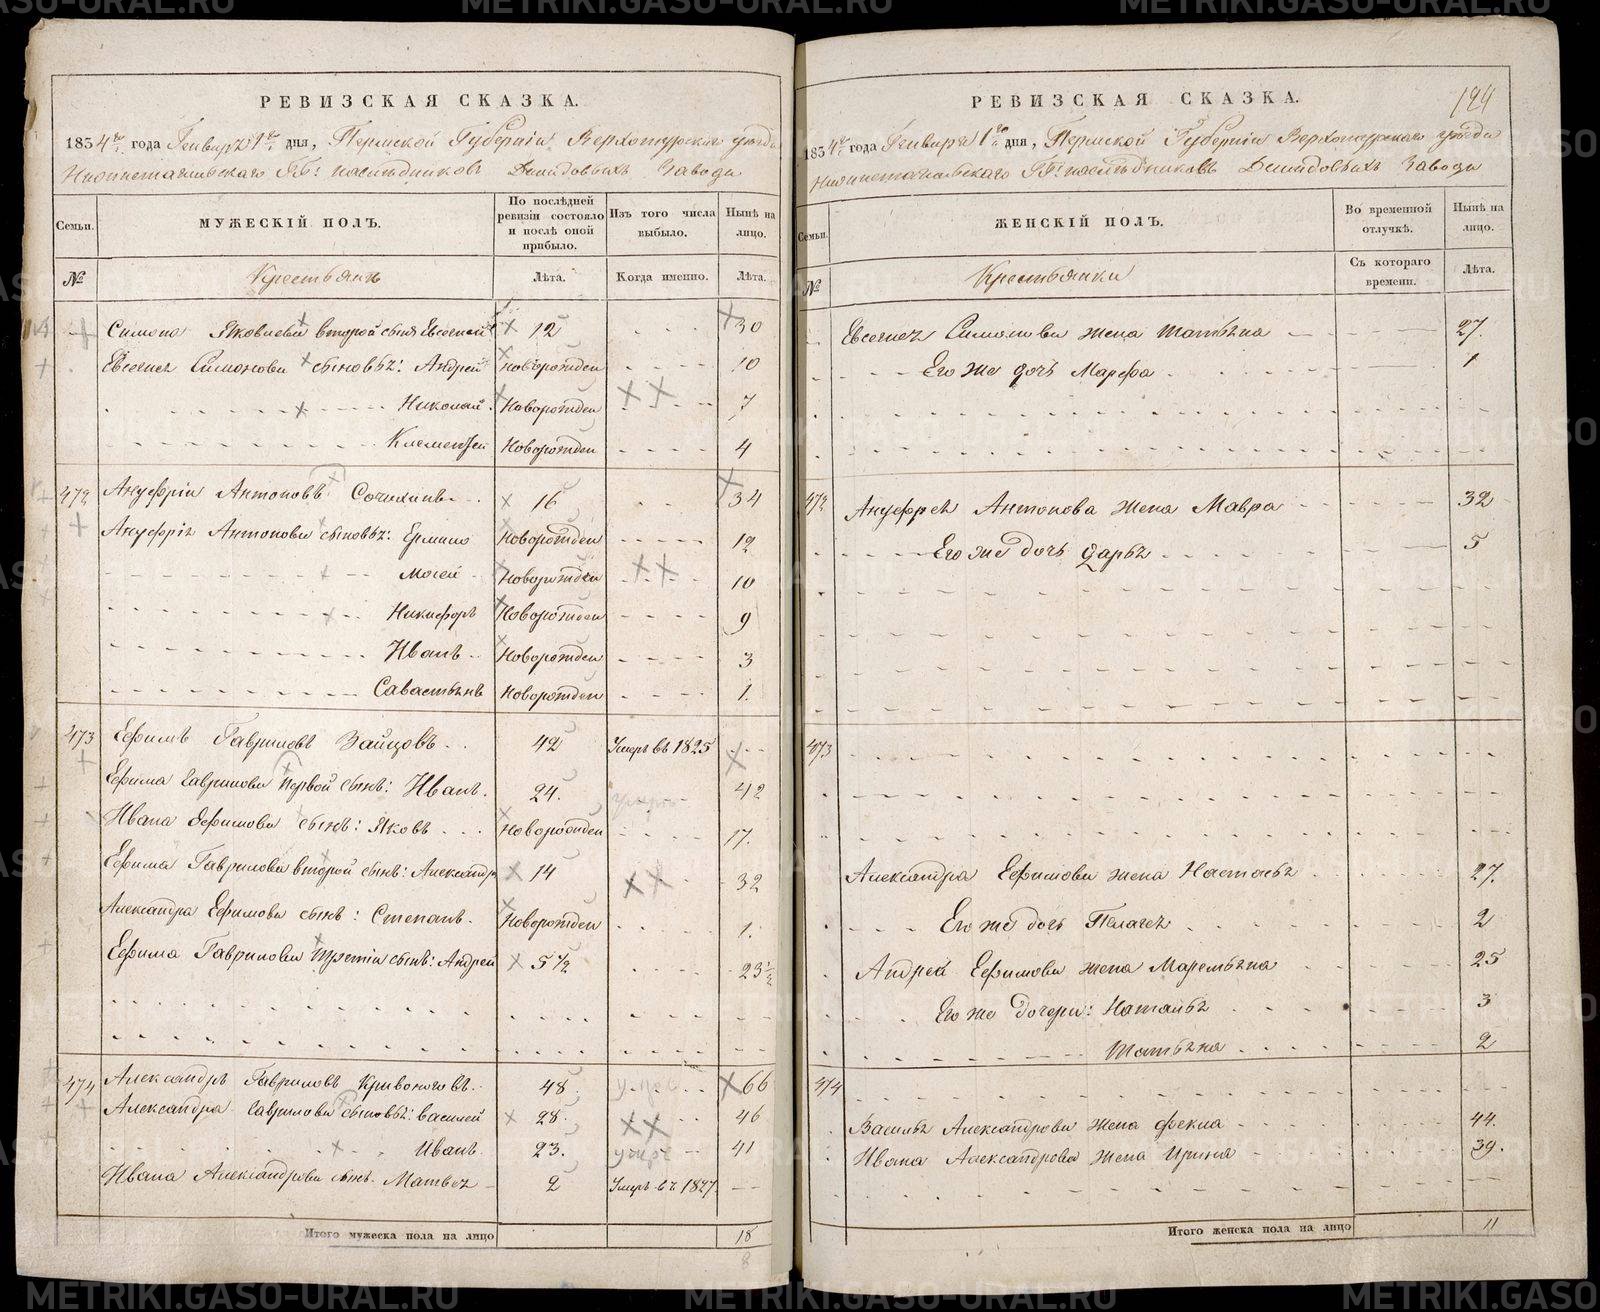 РЕВИЗСКАЯ СКАЗКА.
1834го года Генваря 1го дня, Пермской Губерніи Верхотурскаго уезда
Нижнетагильскаго ГГ: наследниковъ Демидовыхъ Завода
Семьи.
МУЖЕСКІЙ ПОЛЪ.
По послѣдней ревизіи состояло и послѣ оной прибыло.
Изъ того числа выбыло.
Нынѣ на лицо.
№
Крестьянъ
Лѣта.
Когда именно.
Лѣта.
Симона Яковлева второй сынъ Евсегней 12 30
Евсегнея Симонова сыновья: Андрей Новорожден 10
Николай Новорожден 7
Клементей Новорожден 4
472 Ануфрій Антоновъ 16 34
Ануфрія Антонова сыновья: Ермило Новорожден 12
Мосей Новорожден 10
Никифоръ Новорожден 9
Иванъ Новорожден 3
Савастьянъ Новорожден 1.
473 Ефимъ Гавриловъ Зайцовъ 42 Умеръ въ 1825
Ефима Гаврилова Первой сынъ: Иванъ. 24. 42
Ивана Ефимова сынъ: Яковъ Новорожден 17.
Ефима Гаврилова второй сынъ: Александр 14 32
Александра Ефимова сынъ: Степанъ. Новорожден 1.
Ефима Гаврилова третій сынъ: Андрей 5 1/2 23 1/2
474 Александръ Гавриловъ Кривоноговъ 48 66
Александра Гаврилова сыновья: Василей 28 46
Иванъ 23. 41
Ивана Александрова сынъ Матвей 2 Умеръ въ 1827
Итого мужеска пола на лицо 18
8
РЕВИЗСКАЯ СКАЗКА.
194
1834го года Генваря 1го дня, Пермской Губерніи Верхотурскаго уезда
Нижнетагильскаго ГГ: наследниковъ Демидовыхъ Завода
Семьи.
ЖЕНСКІЙ ПОЛЪ.
Во временной отлучкѣ.
Нынѣ на лицо.
№
Крестьянки
Съ котораго времени.
Лѣта.
Евсегнея Симонова жена Татьяна 27.
Его же дочь Марфа 1
472 Ануфрея Антонова жена Мавра 32
Его же дочь Дарья 5
473
Александра Ефимова жена Настасья 27.
Его же дочь Пелагея 2
Андрея Ефимова жена Маремьяна 25
Его же дочери: Наталья 3
Татьяна 2
474
Василья Александрова жена Фекла 44.
Ивана Александрова жена Ирина 39.
Итого женска пола на лицо 11
METRIKI.GASO-URAL.RU